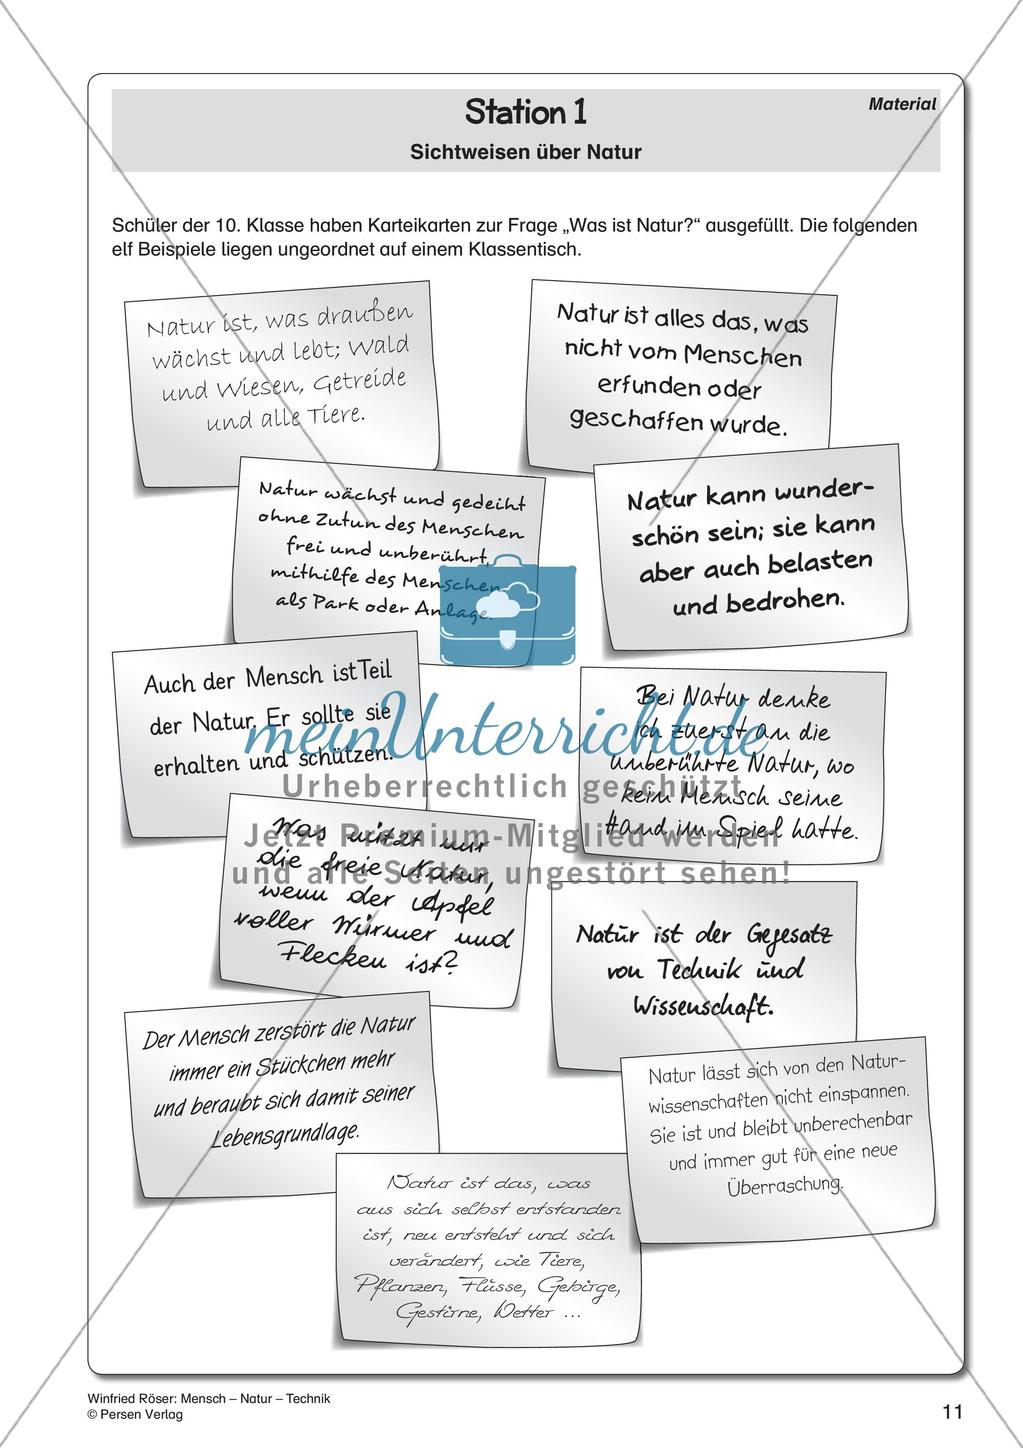 Station 1
Material
Sichtweisen über Natur
Schüler der 10. Klasse haben Karteikarten zur Frage „Was ist Natur?“ ausgefüllt. Die folgenden
elf Beispiele liegen ungeordnet auf einem Klassentisch.
Natur ist, was draußen
wächst und lebt; Wald
und Wiesen, Getreide
und alle Tiere.
Natur ist alles das, was
nicht vom Menschen
erfunden oder
geschaffen wurde.
Natur wächst und gedeiht
ohne Zutun des Menschen
frei und unberührt,
mithilfe des Menschen
als Park oder Anlage.
Natur kann wunder-
schön sein; sie kann
aber auch belasten
und bedrohen.
Auch der Mensch ist Teil
der Natur. Er sollte sie
erhalten und schützen.
Bei Natur denke
ich zuerst an die
unberührte Natur, wo
kein Mensch seine
Hand im Spiel hatte.
meinUnterricht.de
Urheberrechtlich geschützt
Jetzt Premium-Mitglied werden
und alle Seiten ungestört sehen!
Was nützt mir
die freie Natur,
wenn der Apfel
voller Würmer und
Flecken ist?
Natur ist der Gegesatz
von Technik und
Wissenschaft.
Der Mensch zerstört die Natur
immer ein Stückchen mehr
und beraubt sich damit seiner
Lebensgrundlage.
Natur lässt sich von den Natur-
wissenschaften nicht einspannen.
Sie ist und bleibt unberechenbar
und immer gut für eine neue
Überraschung.
Natur ist das, was
aus sich selbst entstanden
ist, neu entsteht und sich
verändert, wie Tiere,
Pflanzen, Flüsse, Gebirge,
Gestirne, Wetter ...
Winfried Röser: Mensch – Natur – Technik
© Persen Verlag
11